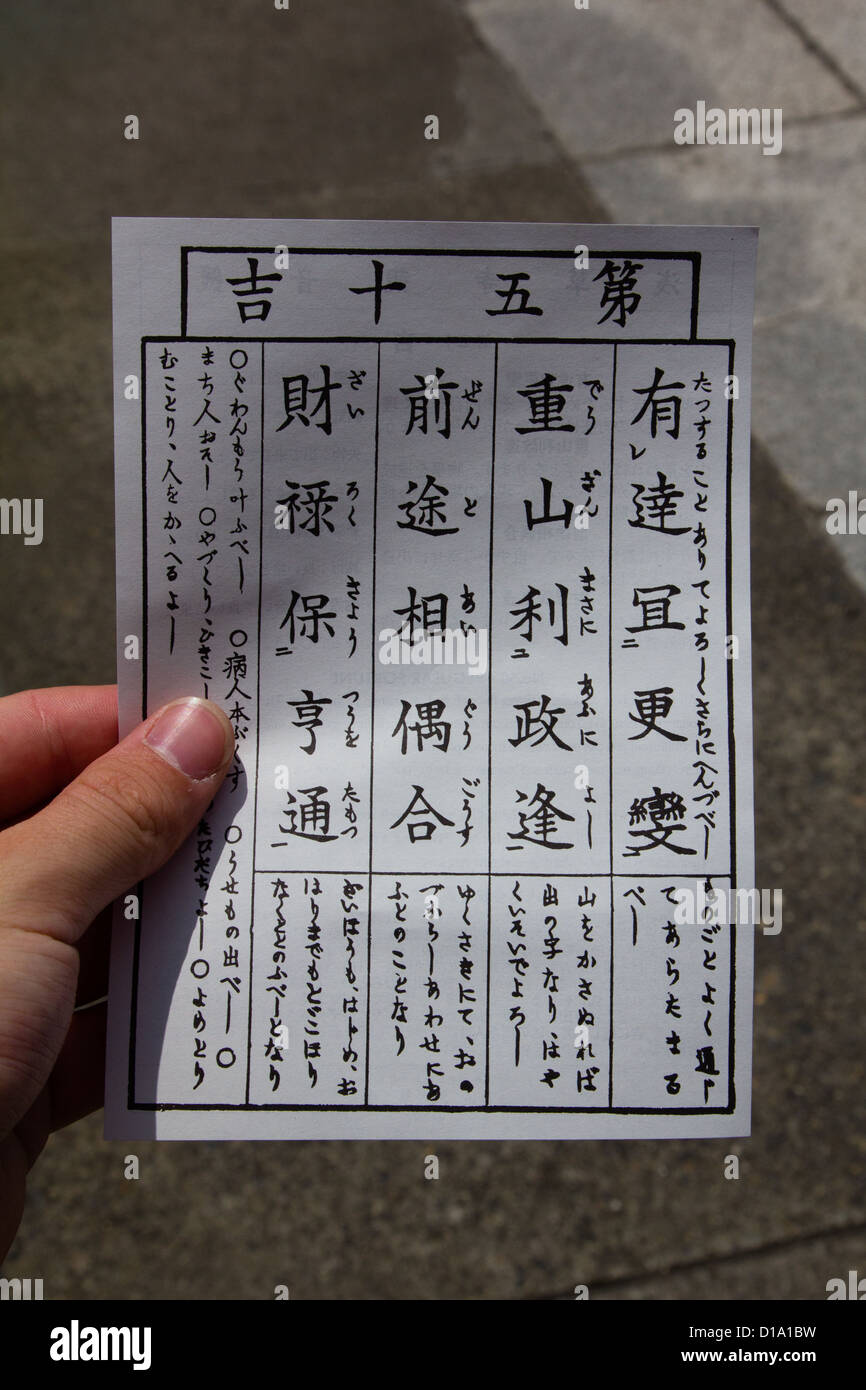 第五十吉
有達冝更變
たつすることありてよろしくさらにへんづべし
ものごとよく通じ
てあらたまる
べし
重山利政逢
でうざんまさにあふによし
山をかさぬれば
出の字なり、はや
くいそいでよろし
前途相偶合
ぜんとあいぐうごうす
ゆくさきにて、おの
づからしあわせにあ
ふとのことなり
財禄保亨通
ざいろくきようつうをたもつ
ざいほうも、はじめ、お
はりまでもとどこほり
なくととのふべしとなり
○ぐわんもう叶ふべし ○病人本ぷくす ○うせもの出べし ○
まち人おそし ○やづくり、ひきこし たびだちよし ○よめとり
むことり、人をかゝへるよし
alamy
D1A1BW
www.alamy.com